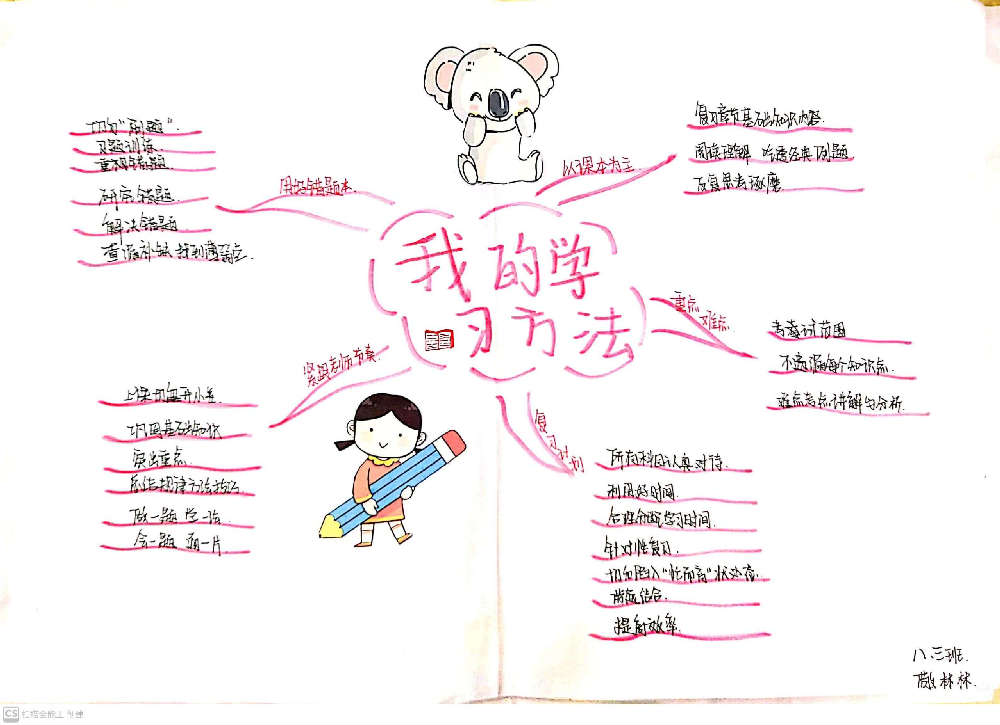 我的学
习方法
用好错题本
切勿“刷题”.
习题训练
重视错题
研究错题.
解决错题.
查漏补缺 找到薄弱点.
以课本为主
复习章节基础知识内容
阅读理解 吃透经典例题
反复思考琢磨
重点 难点
考试范围
不遗漏每个知识点.
难点考点讲解与分析.
紧跟老师节奏
上课切勿开小差
巩固基础知识
突出重点
总结规律方法技巧
做一题 学一法
会一题 通一片
复习计划
所有科目认真对待.
利用好时间
合理分配学习时间.
针对性复习.
切勿陷入“忙而盲”状态
劳逸结合.
提高效率.
八.三班.
林林.
CS 扫描全能王 创建